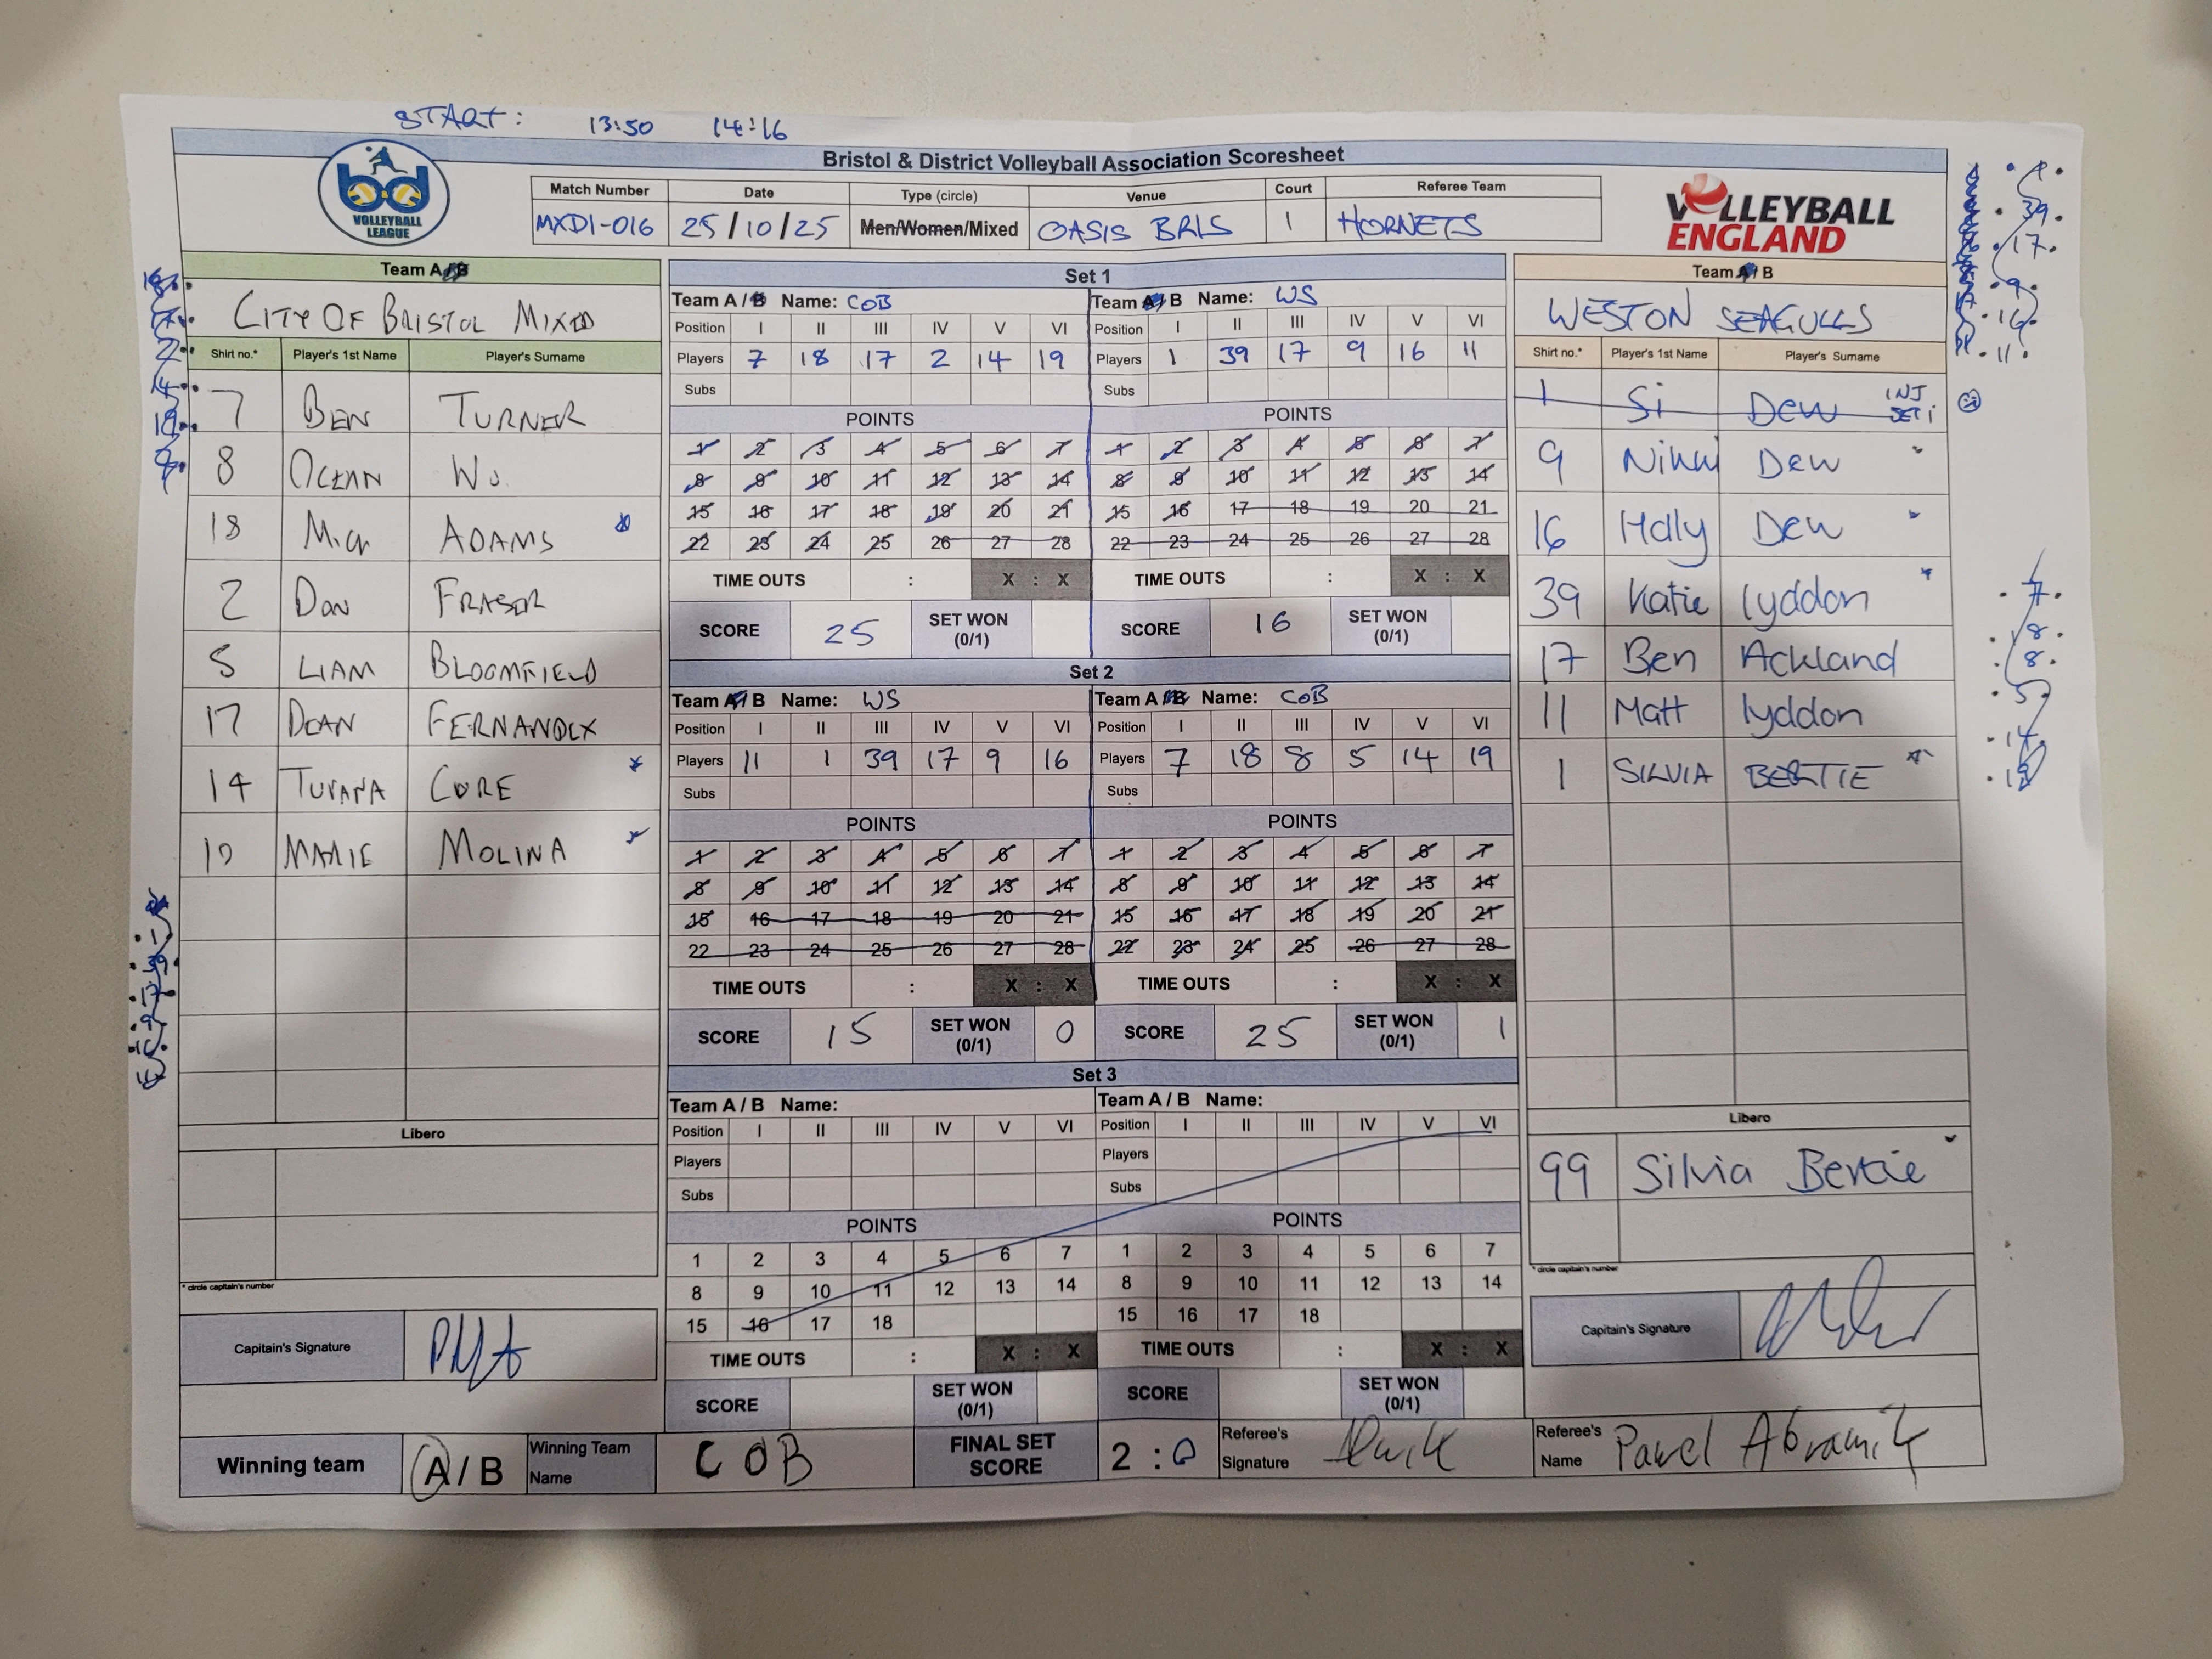 START: 13:50 14:16
Bristol & District Volleyball Association Scoresheet
bd VOLLEYBALL LEAGUE
Match Number Date Type (circle) Venue Court Referee Team
MXD1-016 25/10/25 Men/Women/Mixed OASIS BRLS 1 HORNETS
VOLLEYBALL ENGLAND
Team A/B
CITY OF BRISTOL MIXED
Shirt no.* Player's 1st Name Player's Surname
7 BEN TURNER
8 OCEAN WU
18 ADAMS
2 DAN FRASER
5 LIAM BLOOMFIELD
17 DEAN FERNANDEX
14 CORE
19 MARIE MOLINA
Libero
* circle captain's number
Capitain's Signature
Set 1
Team A / B Name: COB
Position I II III IV V VI
Players 7 18 17 2 14 19
Subs
POINTS
1 2 3 4 5 6 7
8 9 10 11 12 13 14
15 16 17 18 19 20 21
22 23 24 25 26 27 28
TIME OUTS : X : X
SCORE 25 SET WON (0/1)
Team A/B Name: WS
Position I II III IV V VI
Players 1 39 17 9 16 11
Subs
POINTS
1 2 3 4 5 6 7
8 9 10 11 12 13 14
15 16 17 18 19 20 21
22 23 24 25 26 27 28
TIME OUTS : X : X
SCORE 16 SET WON (0/1)
Set 2
Team A/B Name: WS
Position I II III IV V VI
Players 11 1 39 17 9 16
Subs
POINTS
1 2 3 4 5 6 7
8 9 10 11 12 13 14
15 16 17 18 19 20 21
22 23 24 25 26 27 28
TIME OUTS : X : X
SCORE 15 SET WON (0/1) 0
Team A/B Name: COB
Position I II III IV V VI
Players 7 18 8 5 14 19
Subs
POINTS
1 2 3 4 5 6 7
8 9 10 11 12 13 14
15 16 17 18 19 20 21
22 23 24 25 26 27 28
TIME OUTS : X : X
SCORE 25 SET WON (0/1) 1
Set 3
Team A / B Name:
Position I II III IV V VI
Players
Subs
POINTS
1 2 3 4 5 6 7
8 9 10 11 12 13 14
15 16 17 18
TIME OUTS : X : X
SCORE SET WON (0/1)
Team A / B Name:
Position I II III IV V VI
Players
Subs
POINTS
1 2 3 4 5 6 7
8 9 10 11 12 13 14
15 16 17 18
TIME OUTS : X : X
SCORE SET WON (0/1)
Team A/B
WESTON SEAGULLS
Shirt no.* Player's 1st Name Player's Surname
1 Si Dew INJ SET 1
9 Nikki Dew
16 Holly Dew
39 Katie lyddon
17 Ben Ackland
11 Matt lyddon
1 SILVIA BERTIE
Libero
99 Silvia Bertie
* circle captain's number
Capitain's Signature
39
17
9
16
11
7
8
8
5
14
19
Winning team A / B Winning Team Name COB FINAL SET SCORE 2 : 0 Referee's Signature Referee's Name Pavel